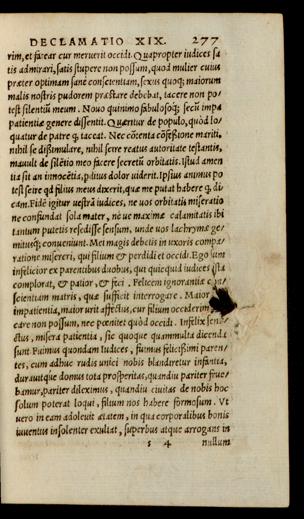 DECLAMATIO XIX. 277
rim, et faceat cur meruerit occidi. Quapropter iudices sa
tis admirari, satis stupere non possum, quod mulier cuius
præter optimam sanè conscientiam, sexus quoq; maiorum
malis nostris pudorem præstare debebat, tacere non po/
test silentiũ meum. Nouo quinimo fabulosoq; secũ impa
patientiæ genere dissentit. Quæritur de populo, quòd lo/
quatur de patre ꝙ taceat. Nec cõtenta cõfeßione mariti,
nihil se dißimulare, nihil ferre reatus autoritate testantis,
mauult de silẽtio meo facere secretũ orbitatis. Istud amen
tia sit an innocẽtia, potius dolor viderit. Ipsius animus po
test scire qd filius meus dixerit, quæ me putat habere ꝙ di/
cam. Fidẽ igitur uestrã iudices, ne uos orbitatis miseratio
ne confundat sola mater, ne ue maximæ calamitatis ibi
tantum putetis resedisse sensum, unde uos lachrymæ ge/
mitusq; conueniunt. Mei magis debetis in uxoris compa/
ratione misereri, qui filium & perdidi et occidi. Ego sum
infelicior ex parentibus duobus, qui quicquid iudices ista
complorat, & patior, & feci. Felicem ignorantiæ
scientiam matris, quæ sufficit interrogare. Maior
impatientia, maior urit affectus, cur filium occiderim
care non possum, nec pœnitet quòd occidi. Infelix sene/
ctus, misera patientia, sic quoque quammulta dicenda
sunt. Fuimus quondam iudices, fuimus felicißimi paren/
tes, cum adhuc rudis unici nobis blandiretur infantia,
dum utiq́ue domus tota prosperitas, quandiu pariter frue/
bamur, pariter dileximus, quandiu ciuitas de nobis hoc
solum poterat loqui, filium nos habere formosum. Vt
uero in eam adoleuit ætatem, in qua corporalibus bonis
iuuentus insolenter exultat, superbus atque arrogans in
s 4 nullum